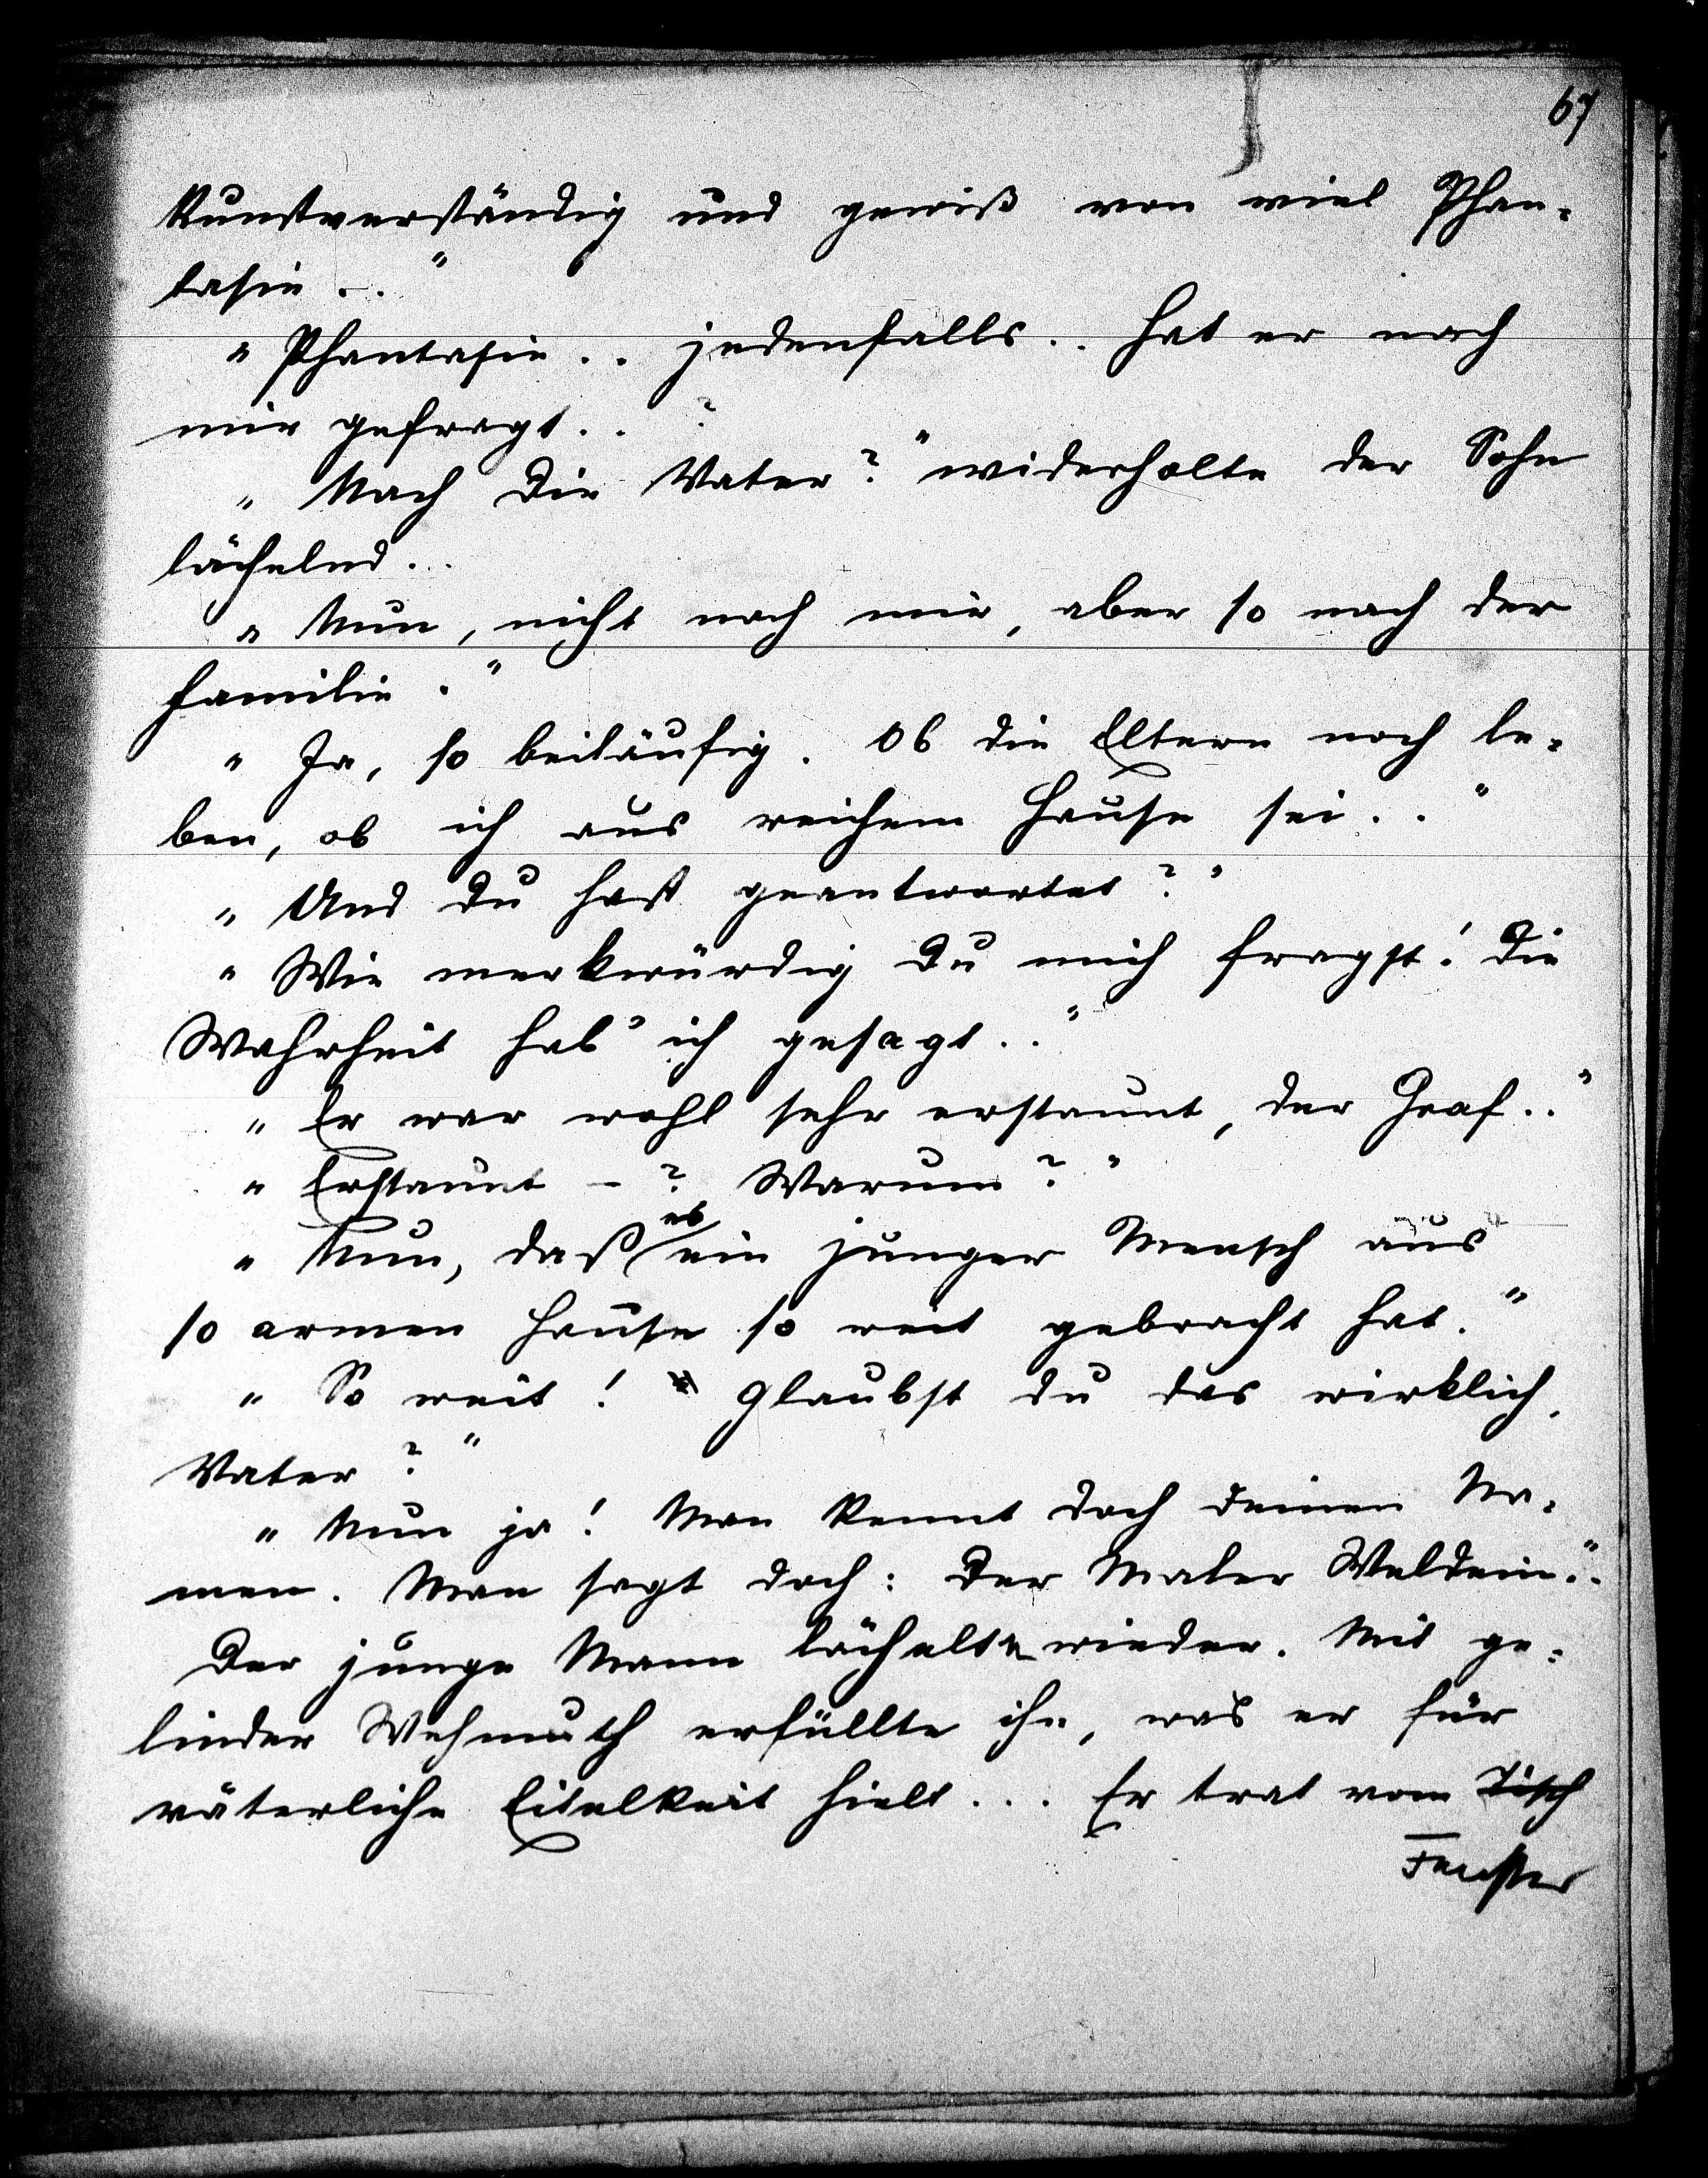 67
Kunstverständig und gewiß von viel Phan-
tasie .. "
" Phantasie .. jedenfalls .. hat er nach
mir gefragt .. ?
" Nach Dir Vater? " widerholte der Sohn
lächelnd ..
" Nun, nicht nach mir, aber so nach der
Familie . "
" Ja, so beiläufig. Ob die Eltern noch le-
ben, ob ich aus reichem Hause sei .. "
" Und Du hast geantwortet? "
" Wie merkwürdig Du mich fragst! Die
Wahrheit hab' ich gesagt .. "
" Er war wohl sehr erstaunt, der Graf .. "
" Erstaunt – ? Warum? "
" Nun, daß es ein junger Mensch aus
so armen Hause so weit gebracht hat. "
" So weit! Glaubst du das wirklich,
Vater? "
" Nun ja! Man kennt doch deinen Na-
men. Man sagt doch: Der Maler Waldein .. "
Der junge Mann lächelte wieder. Mit ge-
linder Wehmuth erfüllte ihn, was er für
väterliche Eitelkeit hielt ... Er trat vom Tisch
Fenster